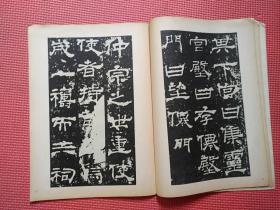 其下宮曰集靈
宮壂曰存僊壂
門曰望僊門
仲宗之世重使
使者持焉
歲一禱而三祠